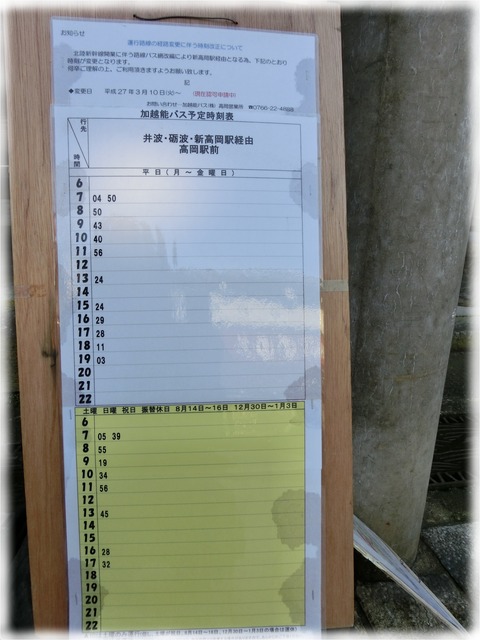 お知らせ
運行路線の経路変更に伴う時刻改正について
北陸新幹線開業に伴う路線バス網改編により新高岡駅経由となる為、下記のとおり
時刻が変更となります。
何卒ご理解の上、ご利用頂きますようお願い致します。
記
◆変更日 平成27年3月10日(火)～ (現在認可申請中)
お問い合わせ…加越能バス(株) 高岡営業所 ☎0766-22-4888
加越能バス予定時刻表
行先
時間
井波・砺波・新高岡駅経由
高岡駅前
平日(月～金曜日)
6
7 04 50
8 50
9 43
10 40
11 56
12
13 24
14
15 24
16 29
17 28
18 11
19 03
20
21
22
土曜 日曜 祝日 振替休日 8月14日～16日 12月30日～1月3日
6
7 05 39
8 55
9 19
10 34
11 56
12
13 45
14
15
16 28
17 32
18
19
20
21
22